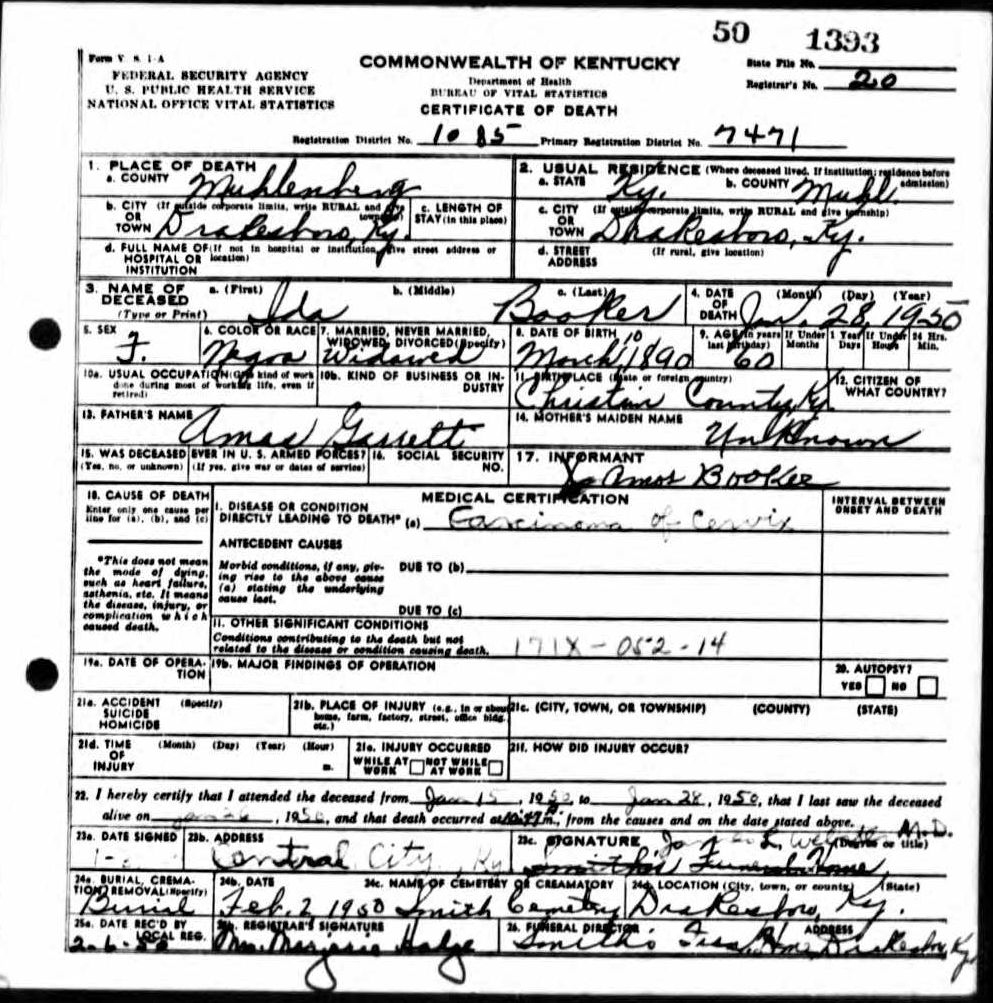 50 1393
Form V. S. 1-A
FEDERAL SECURITY AGENCY
U. S. PUBLIC HEALTH SERVICE
NATIONAL OFFICE VITAL STATISTICS
COMMONWEALTH OF KENTUCKY
Department of Health
BUREAU OF VITAL STATISTICS
CERTIFICATE OF DEATH
State File No.
Registrar's No. 20
Registration District No. 1085 Primary Registration District No. 7471
1. PLACE OF DEATH
a. COUNTY Muhlenberg
2. USUAL RESIDENCE (Where deceased lived. If institution: residence before admission)
a. STATE Ky. b. COUNTY Muhl.
b. CITY (If outside corporate limits, write RURAL and give township)
OR
TOWN Drakesboro, Ky.
c. LENGTH OF STAY (in this place)
c. CITY (If outside corporate limits, write RURAL and give township)
OR
TOWN Drakesboro, Ky.
d. FULL NAME OF (If not in hospital or institution, give street address or location)
HOSPITAL OR
INSTITUTION
d. STREET ADDRESS (If rural, give location)
3. NAME OF DECEASED (Type or Print)
a. (First) b. (Middle) c. (Last)
Ida Booker
4. DATE OF DEATH (Month) (Day) (Year)
Jan. 28, 1950
5. SEX
F.
6. COLOR OR RACE
Negro
7. MARRIED, NEVER MARRIED, WIDOWED, DIVORCED (Specify)
Widowed
8. DATE OF BIRTH
March 10 1890
9. AGE (In years last birthday) If Under 1 Year If Under 24 Hrs.
Months Days Hours Min.
60
10a. USUAL OCCUPATION (Give kind of work done during most of working life, even if retired)
10b. KIND OF BUSINESS OR INDUSTRY
11. BIRTHPLACE (State or foreign country)
Christian County, Ky.
12. CITIZEN OF WHAT COUNTRY?
13. FATHER'S NAME
Amas Garrett
14. MOTHER'S MAIDEN NAME
Unknown
15. WAS DECEASED EVER IN U. S. ARMED FORCES?
(Yes, no, or unknown) (If yes, give war or dates of service)
16. SOCIAL SECURITY NO.
17. INFORMANT
Amos Booker
18. CAUSE OF DEATH
Enter only one cause per line for (a), (b), and (c)
MEDICAL CERTIFICATION
INTERVAL BETWEEN ONSET AND DEATH
I. DISEASE OR CONDITION
DIRECTLY LEADING TO DEATH* (a) Carcinoma of Cervix
ANTECEDENT CAUSES
*This does not mean the mode of dying, such as heart failure, asthenia, etc. It means the disease, injury, or complication which caused death.
Morbid conditions, if any, giving rise to the above cause (a) stating the underlying cause last.
DUE TO (b)
DUE TO (c)
II. OTHER SIGNIFICANT CONDITIONS
Conditions contributing to the death but not related to the disease or condition causing death.
171X - 052 - 14
19a. DATE OF OPERATION
19b. MAJOR FINDINGS OF OPERATION
20. AUTOPSY?
YES NO
21a. ACCIDENT (Specify)
SUICIDE
HOMICIDE
21b. PLACE OF INJURY (e.g., in or about home, farm, factory, street, office bldg. etc.)
21c. (CITY, TOWN, OR TOWNSHIP) (COUNTY) (STATE)
21d. TIME (Month) (Day) (Year) (Hour)
OF
INJURY m.
21e. INJURY OCCURRED
WHILE AT WORK NOT WHILE AT WORK
21f. HOW DID INJURY OCCUR?
22. I hereby certify that I attended the deceased from Jan 15, 1950 to Jan 28, 1950, that I last saw the deceased
alive on Jan 26, 1950, and that death occurred at m., from the causes and on the date stated above.
23a. DATE SIGNED
23b. ADDRESS
Central City, Ky
23c. SIGNATURE (Degree or title)
James L. Webster M.D.
Smith's Funeral Home
24a. BURIAL, CREMATION, REMOVAL (Specify)
Burial
24b. DATE
Feb. 2 1950
24c. NAME OF CEMETERY OR CREAMATORY
Smith Cemetery
24d. LOCATION (City, town, or county) (State)
Drakesboro, Ky.
25a. DATE REC'D BY LOCAL REG.
2-6-50
25b. REGISTRAR'S SIGNATURE
Mrs. Marjorie
26. FUNERAL DIRECTOR ADDRESS
Smith's Home Drakesboro, Ky.